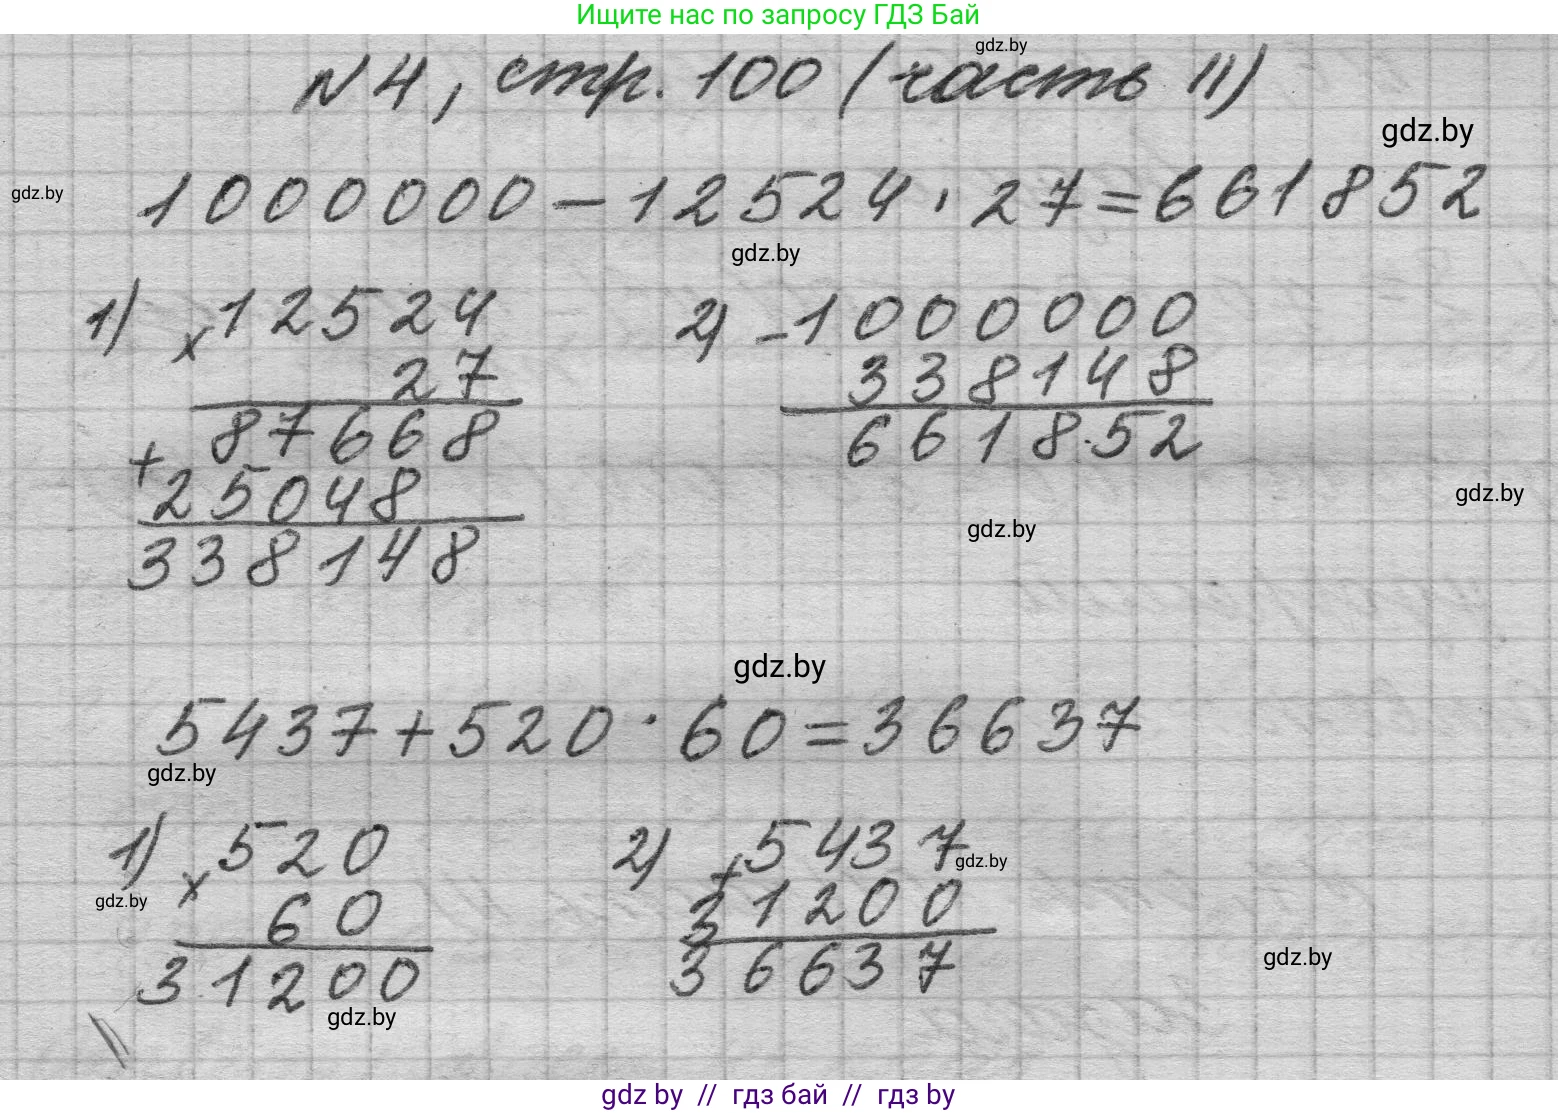 Ищите нас по запросу ГДЗ Бай
gdz.by
N4, стр. 100 (часть II)
gdz.by
gdz.by
1000000-12524·27=661852
gdz.by
1) ×12524
27
87668
+
25048
338148
2) -1000000
338148
661852
gdz.by
gdz.by
gdz.by
5437+520·60=36637
gdz.by
1) ×520
60
31200
2) +5437
31200
36637
gdz.by
gdz.by
gdz.by
gdz.by
gdz by // гдз бай // гдз by